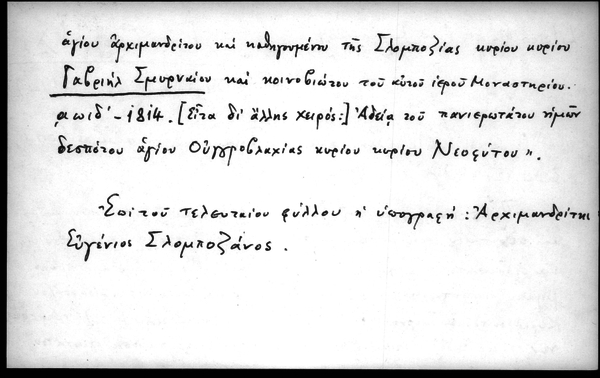 ἁγίου ἀρχιμανδρίτου καὶ καθηγουμένου τῆς Σλομποζίας κυρίου κυρίου
Γαβριὴλ Σμυρναίου καὶ κοινοβιώτου τοῦ αὐτοῦ ἱεροῦ Μοναστηρίου.
͵αωιδ´ - 1814. [Εἶτα δι' ἄλλης χειρός:] Ἀδείᾳ τοῦ πανιερωτάτου ἡμῶν
δεσπότου ἁγίου Οὑγγροβλαχίας κυρίου κυρίου Νεοφύτου".
Ἐπὶ τοῦ τελευταίου φύλλου ἡ ὑπογραφή: Ἀρχιμανδρίτης
Εὐγένιος Σλομποζάνος.